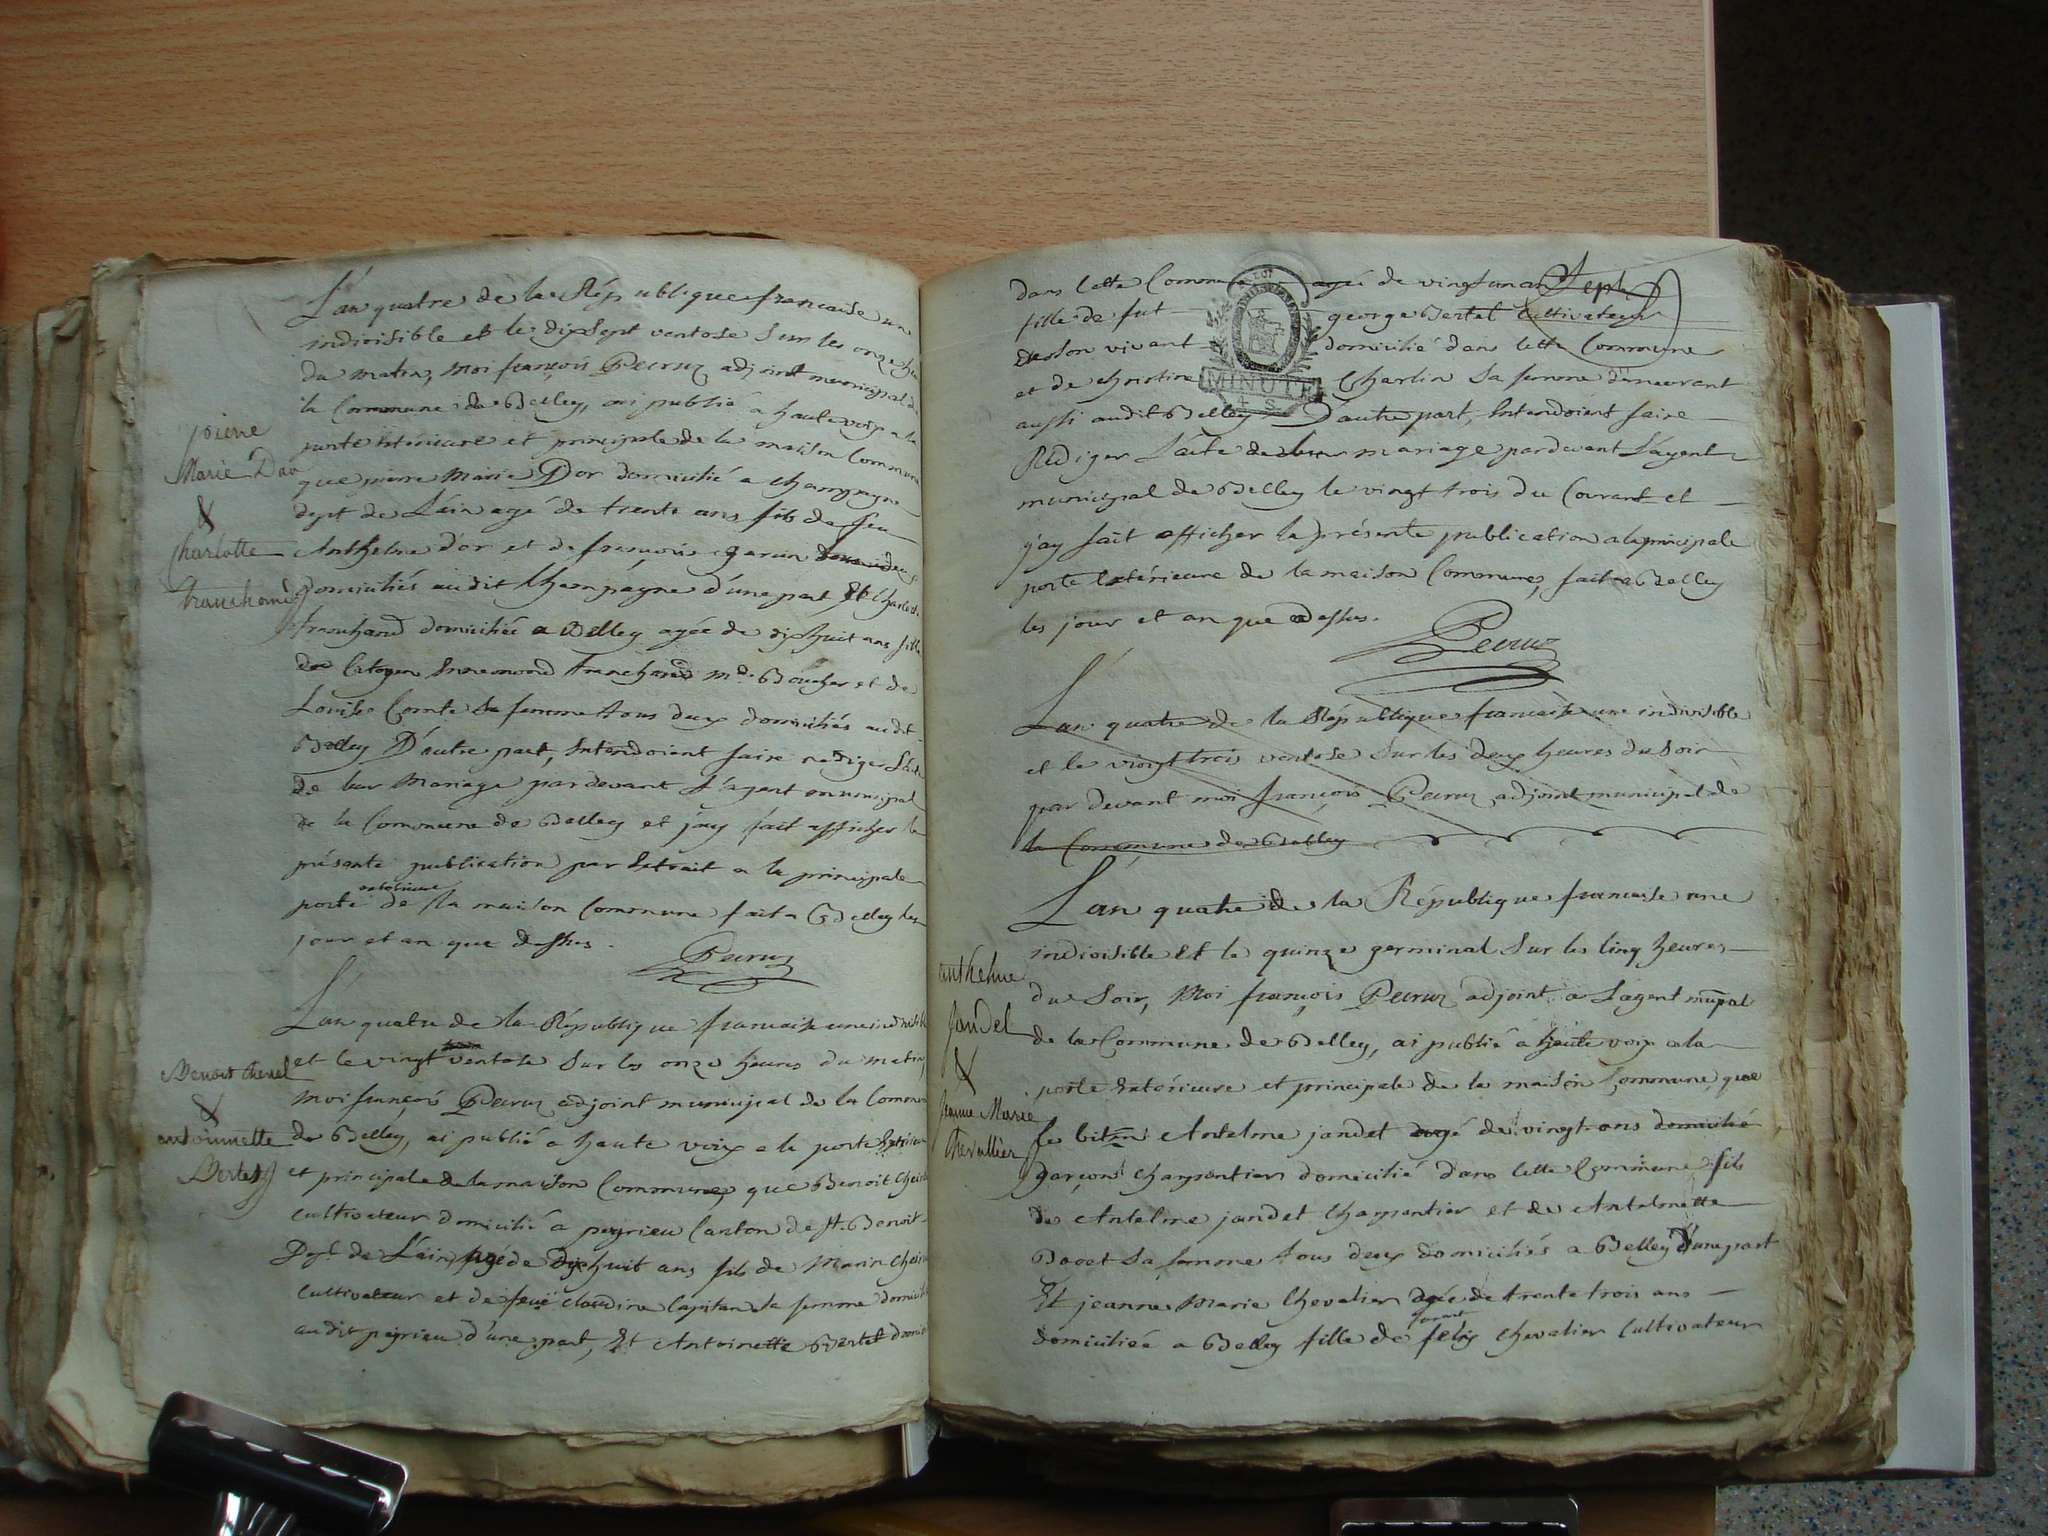 L'an quatre de la République francaise une
indivisible et le dixsept ventose sur les onze heu
du matin, Moi françois Pecruz adjoint municipal de
la Commune de Belley, ai publié a haute voix a la
porte extérieure et principale de la maison Commune
que pierre Marie D'or domicilié a Champagne
dept de L'ain agé de trente ans fils de feu
Anthelme d'or et de françoise
domiciliés audit Champagne d'une part Et Charlotte
tranchand domiciliée a Belley agée de dixhuit ans fille
du Citoyen Innemond tranchand md. Boucher et de
Louise Comte sa femme tous deux domiciliés audit
Belley D'autre part, Entendoient faire rediger L'acte
de leur Mariage pardevant L'agent municipal
de la Commune de Belley et j'ay fait afficher la
présente publication par Extrait a la principale
porte extérieure de la maison Commune fait a Belley les
jour et an que dessus.
Pecruz
pierre
Marie Dor
&
charlotte
tranchand
L'an quatre de la République francaise une indivisible
et le vingt ventose sur les onze heures du matin
Moi françois Pecruz adjoint municipal de la Commune
de Belley, ai publié a haute voix a la porte Extérieure
et principale de la maison Commune, que Benoit
cultivateur domicilié a peyrieu Canton de St. Benoit
Dept. de L'ain agé de dixhuit ans fils de Marin
cultivateur et de feuë claudine Capitan sa femme domicilié
audit peyrieu d'une part, Et Antoinette Bertet domici
Benoit
&
antoinnette
Bertet
dans Cette Commune agée de vingt un ans
fille de fut george Bertet Cultivateur
de son vivant domicilié dans Cette Commune
et de Christine Charlin sa femme demeurant
aussi audit Belley D'autre part, Entendoient faire
Rédiger L'acte de leur mariage pardevant L'agent
municipal de Belley le vingt trois du Courant et
j'ay fait afficher la présente publication a la principale
porte Extérieure de la maison Commune, fait a Belley
les jour et an que dessus.
MINUTE
4 S
Pecruz
L'an quatre de la République francaise une indivisible
et le vingt trois ventose sur les deux heures du soir
par devant moi françois Pecruz adjoint municipal de
la Commune de Belley
L'an quatre de la République francaise une
indivisible et le quinze germinal sur les Cinq heures
du Soir, Moi françois Pecruz adjoint a Lagent mpal
de la Commune de Belley, ai publié a haute voix a la
porte Extérieure et principale de la maison Commune, que
Le Citen Antelme jandet agé de vingt ans domicilié
garçon charpentier domicilié dans Cette Commune fils
de Antelme jandet Charpentier et de Antelmette
Bovet sa femme tous deux domiciliés a Belley D'une part
Et jeanne Marie Chevalier agée de trente trois ans
domiciliée a Belley fille de felix chevalier Cultivateur
anthelme
Jandet
&
Jeanne Marie
Chevallier